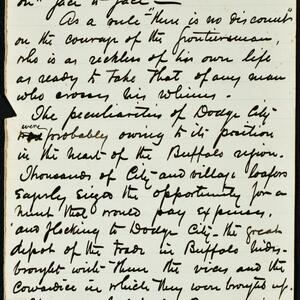 on" face to face—
As a rule "there is no discount"
on the courage of the frontiersman,
who is as reckless of his own life
as ready to take that of any man
who crosses his whims.
The peculiarities of Dodge City
were
probably owing to its position
in the heart of the Buffalo region.
Thousands of City and village loafers
eagerly seized the opportunity for a
hunt that would pay expenses,
and flocking to Dodge City the great
depot of the Trade in Buffalo hides
brought with them the vices and the
Cowardice in which they were brought up.